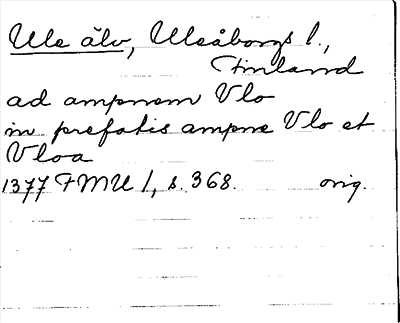 Ule älv, Uleåborgs l.,
Finland
ad ampnem Vlo
in prefatis ampne Vlo et
Vloa
1377 FMU I, s. 368. orig.